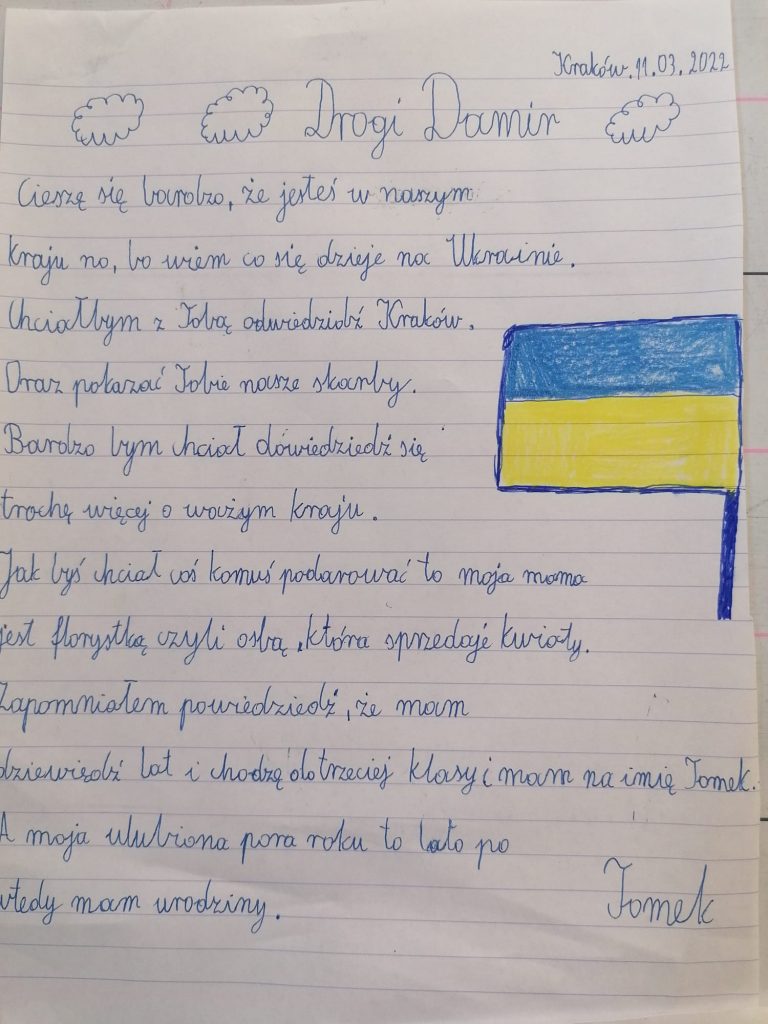 Kraków.11.03.2022
Drogi Damir
Cieszę się bardzo, że jesteś w naszym
kraju no, bo wiem co się dzieje na Ukrainie.
Chciałbym z Tobą odwiedzidź Kraków.
Oraz pokazać Tobie nasze skarby.
Bardzo bym chciał dowiedziedź się
trochę więcej oważym kraju.
Jak byś chciał coś komuś podarować to moja mama
jest florystką czyli osbą, która sprzedaje kwiaty.
Zapomniałem powiedziedź, że mam
dziewiędź lat i chodzę do trzeciej klasy i mam na imię Tomek.
A moja ulubiona pora roku to lato po
wtedy mam urodziny.
Tomek